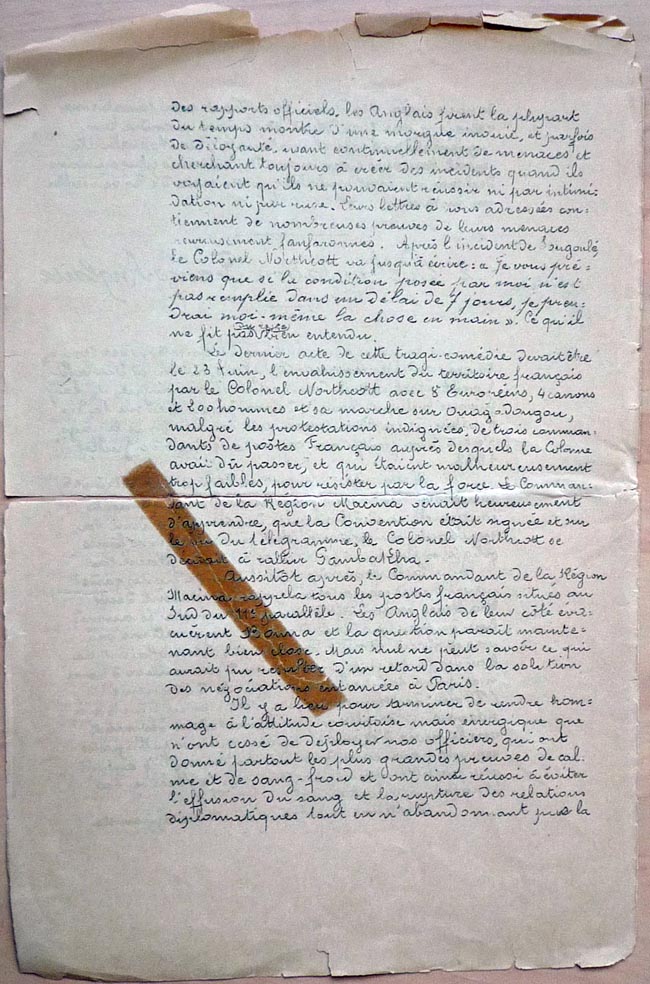 des rapports officiels, les Anglais firent la plupart
du temps montre d'une morgue inouie, et parfois
de déloyauté, usant continuellement de menaces et
cherchant toujours à créer des incidents quand ils
voyaient qu'ils ne pouvaient réussir ni par intimi-
dation ni par ruse. Leurs lettres à vous adressées con-
tiennent de nombreuses preuves de leurs menaces
heureusement fanfaronnes. Après l'incident de
le Colonel Northcott va jusqu'à écrire: « Je vous pré-
viens que si la condition posée par moi n'est
pas remplie dans un délai de 7 jours, je pren-
drai moi-même la chose en main ». Ce qu'il
ne fit pas bien entendu.
Le dernier acte de cette tragi-comédie devait être
le 23 Juin, l'envahissement du territoire français
par le Colonel Northcott avec 8 Européens, 4 canons
et 200 hommes et sa marche sur Ouag-Dougou,
malgré les protestations indignées, de trois comman-
dants de postes Français auprès desquels la Colonne
avait dû passer, et qui étaient malheureusement
trop faibles, pour résister par la force. Le Comman-
dant de la Région Macina venait heureusement
d'apprendre, que la Convention était signée et sur
le vu du télégramme, le Colonel Northcott se
décidait à rallier Gambakha.
Aussitôt après, le Commandant de la Région
Macina rappela tous les postes français situés au
Sud du 11e parallèle. Les Anglais de leur côté éva-
cuèrent Bouna et la question paraît mainte-
nant bien close. Mais nul ne peut savoir ce qui
aurait pu résulter d'un retard dans la solution
des négociations entamées à Paris.
Il y a lieu pour terminer de rendre hom-
mage à l'attitude courtoise mais énergique que
n'ont cessé de déployer nos officiers, qui ont
donné partout les plus grandes preuves de cal-
me et de sang-froid et ont ainsi réussi à éviter
l'effusion du sang et la rupture des relations
diplomatiques tout en n'abandonnant pas la